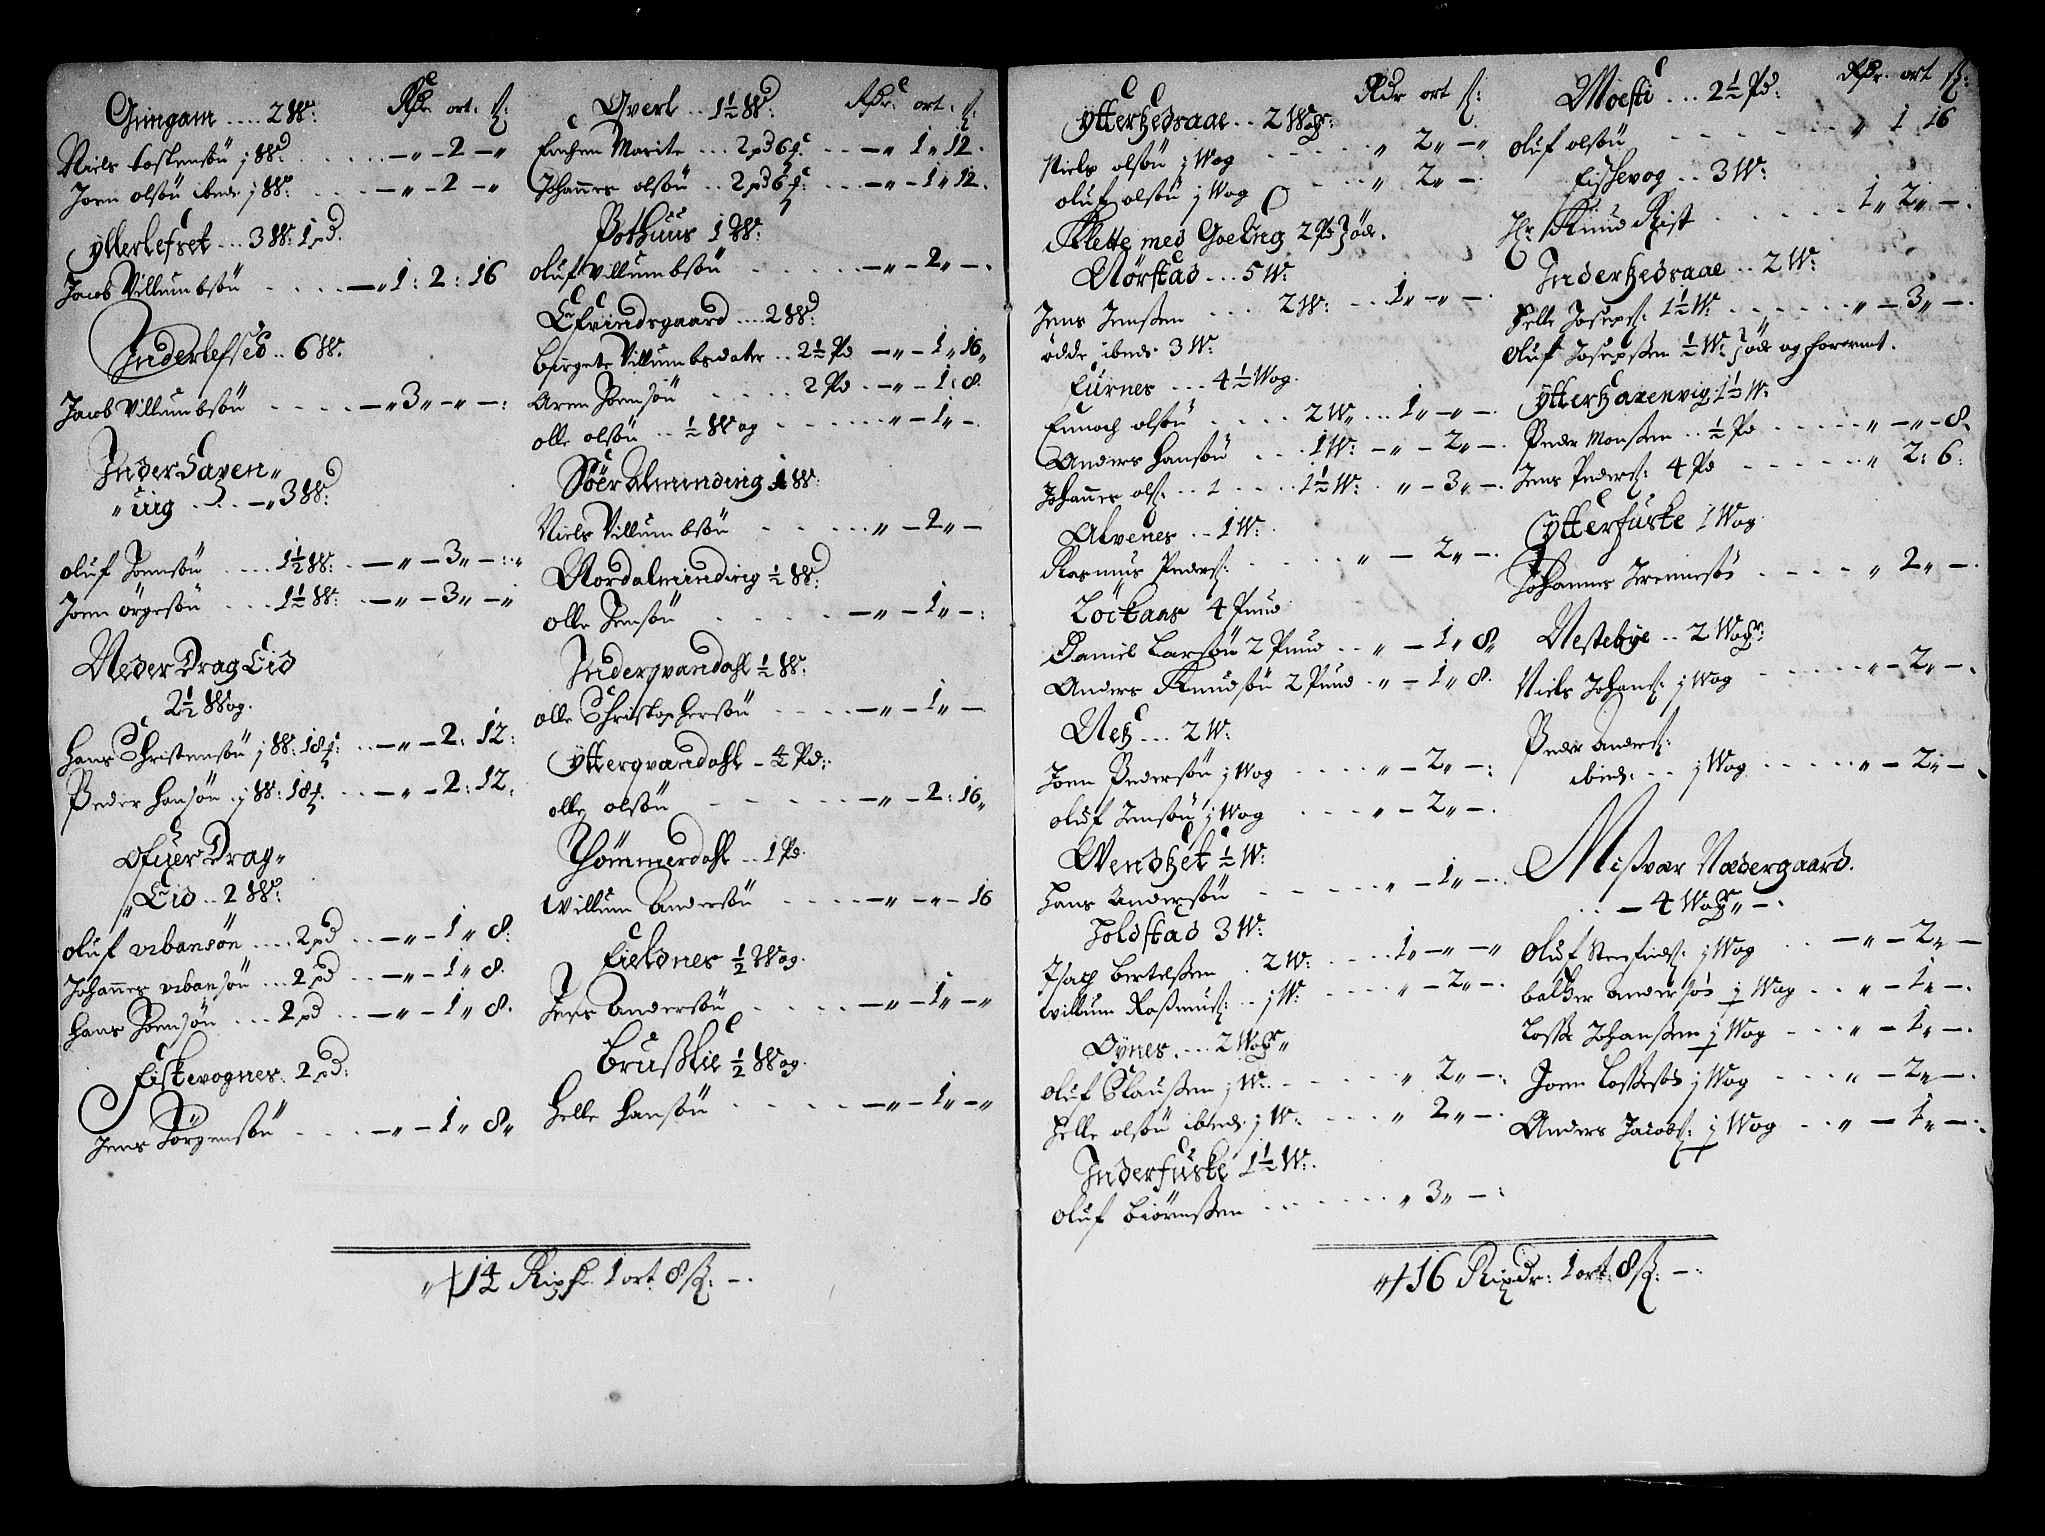 Gimgam .... 2 W: Rdr. ort: ß:
Niels Loskensön j W: ..... — „ — 2 — „
Joen olsön ibnd: j W: .... — „ — 2 — „
Ytterlefset ... 3 W: 1 pd.
Jacob Villumbsön .... — „ 1 : 2 : 16
Inderlefsed .. 6 W.
Jacob Villumbsön ..... — „ 3 „ — „ — :
Inderhaven „
„ uig ... — „ 3 W:
oluf Joensön .... 1½ W: .. — „ — 3 „ — :
Joen örgesön .... 1½ W: .. — „ — 3 „ — „
Neder Drag Eid
2½ Wog.
Hans Christensön j W: 18 ... — „ — 2 : 12 :
Peder Hansön j W: 18 ... — „ — 2 : 12 :
Ofuer Drag „
„ Eid .. 2 W:
oluf vrbansön .... 2 pd ... — „ — 1 „ 8 :
Johannes vrbansön ... 2 pd ... — „ — 1 „ 8.
Hans Joensön ... 2 pd ... — „ — 1 „ 8.
Fiskevognes. 2 pd:
Jens Jörgensön .... — „ — 1 „ 8 „
Qverl .. 1½ W. Rdr. ort. ß:
Encken Marite ... 2 pd 6 ... — „ 1 „ 12.
Johannes olsön .. 2 pd 6 ... — „ — 1 „ 12.
Bothuus 1 W:
oluf Villumbsön ..... — „ — 2 „ — .
Efvindsgaard .... 2 W:
Birgete Villumbsdater .. 2½ Pd — „ — 1 „ 16 „
Aren Joensön ..... 2 Pd .. — „ — 1 : 8.
olle olsön .. ½ Wog ..... „ — 1 „ — .
Söer Alminding 1 W:
Niels Villumbsön ..... „ — 2 „ —
Nordalminding ½ W:
olle Jensön ..... — „ — 1 „ — :
Inderqvandahl ½ W.
olle Christophersön .... — „ — 1 „ —
Ytterqvandahl — 4 Pd:
olle olsön ..... — „ — 2 : 16 „
Thömmerdahl .. 1 Pd.
Willum Andersön .... — „ — „ — 16
Fieldnes ½ Wog.
Jens Andersön ..... — „ — 1 „ — „
Brusklie ½ Wog.
Helle Hansön ..... — „ — 1 „ — „
„ 14 Rixdr. 1 ort 8 ß: —.
Ytterhedsaae .. 2 Woger: Rdr ort ß:
Niels olsön j Wog ..... „ 2 „ — „
oluf olsön j Wog .... „ 2 „ — .
Klette med Goeling 2 Pd Jöde.
Nörstad ... 5 W:
Jens Jenssen ... 2 W: ... 1 „ — „ — .
ödde ibnd: 3 W:
Furnes ... 4½ Wog.
Eunoch olsön .... 2 W „ ... 1 „ — „ — .
Anders Hansön ... 1 W: — „ — 2 „ — .
Johannes olß: .... 1½ W: . „ — 3 „ — .
Alvenes .. 1 W:
Rasmus Pederß: ..... „ — 2 „ — .
Löckans 4 Pund
Daniel Larsön 2 Pund .. „ — 1 „ 8 „
Anders Knudsön 2 Pund . „ — 1 „ 8.
Nes ... 2 W.
Joen Pedersön j Wog .... „ — 2 „ — :
oluf Jensön j Wog .... „ — 2 „ — .
Wendset ½ W:
Hans Andersön ..... „ — 1 „ — .
Joldstad 3 W:
Isach Bertelssen . 2 W: .... 1 „ — „ — „
Willum Rasmusß: .. j W: .... „ — 2 „ — .
Oynes .... 2 Woger „
oluf Clausen j W. ..... „ 2 „ — :
Helle olsön ibnd: j W: .... „ 2 „ — .
Inderfuske 1½ W:
oluf Biörnssen ...... „ 3 „ — :
„ 16 Rixdr: 1 ort: 8 ß: — :
Moesti ... 2½ Pd: Rdr. ort ß:
oluf olsön ..... „ 1 16
Fischevog .. 3 W:
Hr. Knud Rist ..... 1 „ 2 „ — .
Inderhedsaae .. 2 W:
Helle Josepß: 1½ W: ..... „ — 3 „ — .
Oluf Josepssen ½ W: Jöde og forarmt.
Ytterhaxenvig 1½ W:
Peder Monssen .. ½ Pd ..... „ — „ — 8.
Jens Pederß: 4 Pd ..... „ 2 : 6 :
Ytterfuske 1 Wog
Johannes Jremiesös ..... „ 2 „ — .
Nestebye .. 2 Woger:
Niels Johanß: j Wog ..... „ — 2 „ — .
Peder Anderß:
ibnd: .. j Wog ..... „ — 2 „ — .
Misvær Nedergaard.
.. — 4 Woger „ — .
Oluf Stenfindß: j Wog .. — „ — 2 „ —
Baltzer Andersös ½ Wog .. „ — 1 „ — .
Loske Johanssen ½ Wog ... „ — 1 „ — .
Joen Loskesös j Wog .... „ — 2 „ — .
Anders Jacobß: ½ Wog .. „ — 1 „ — :